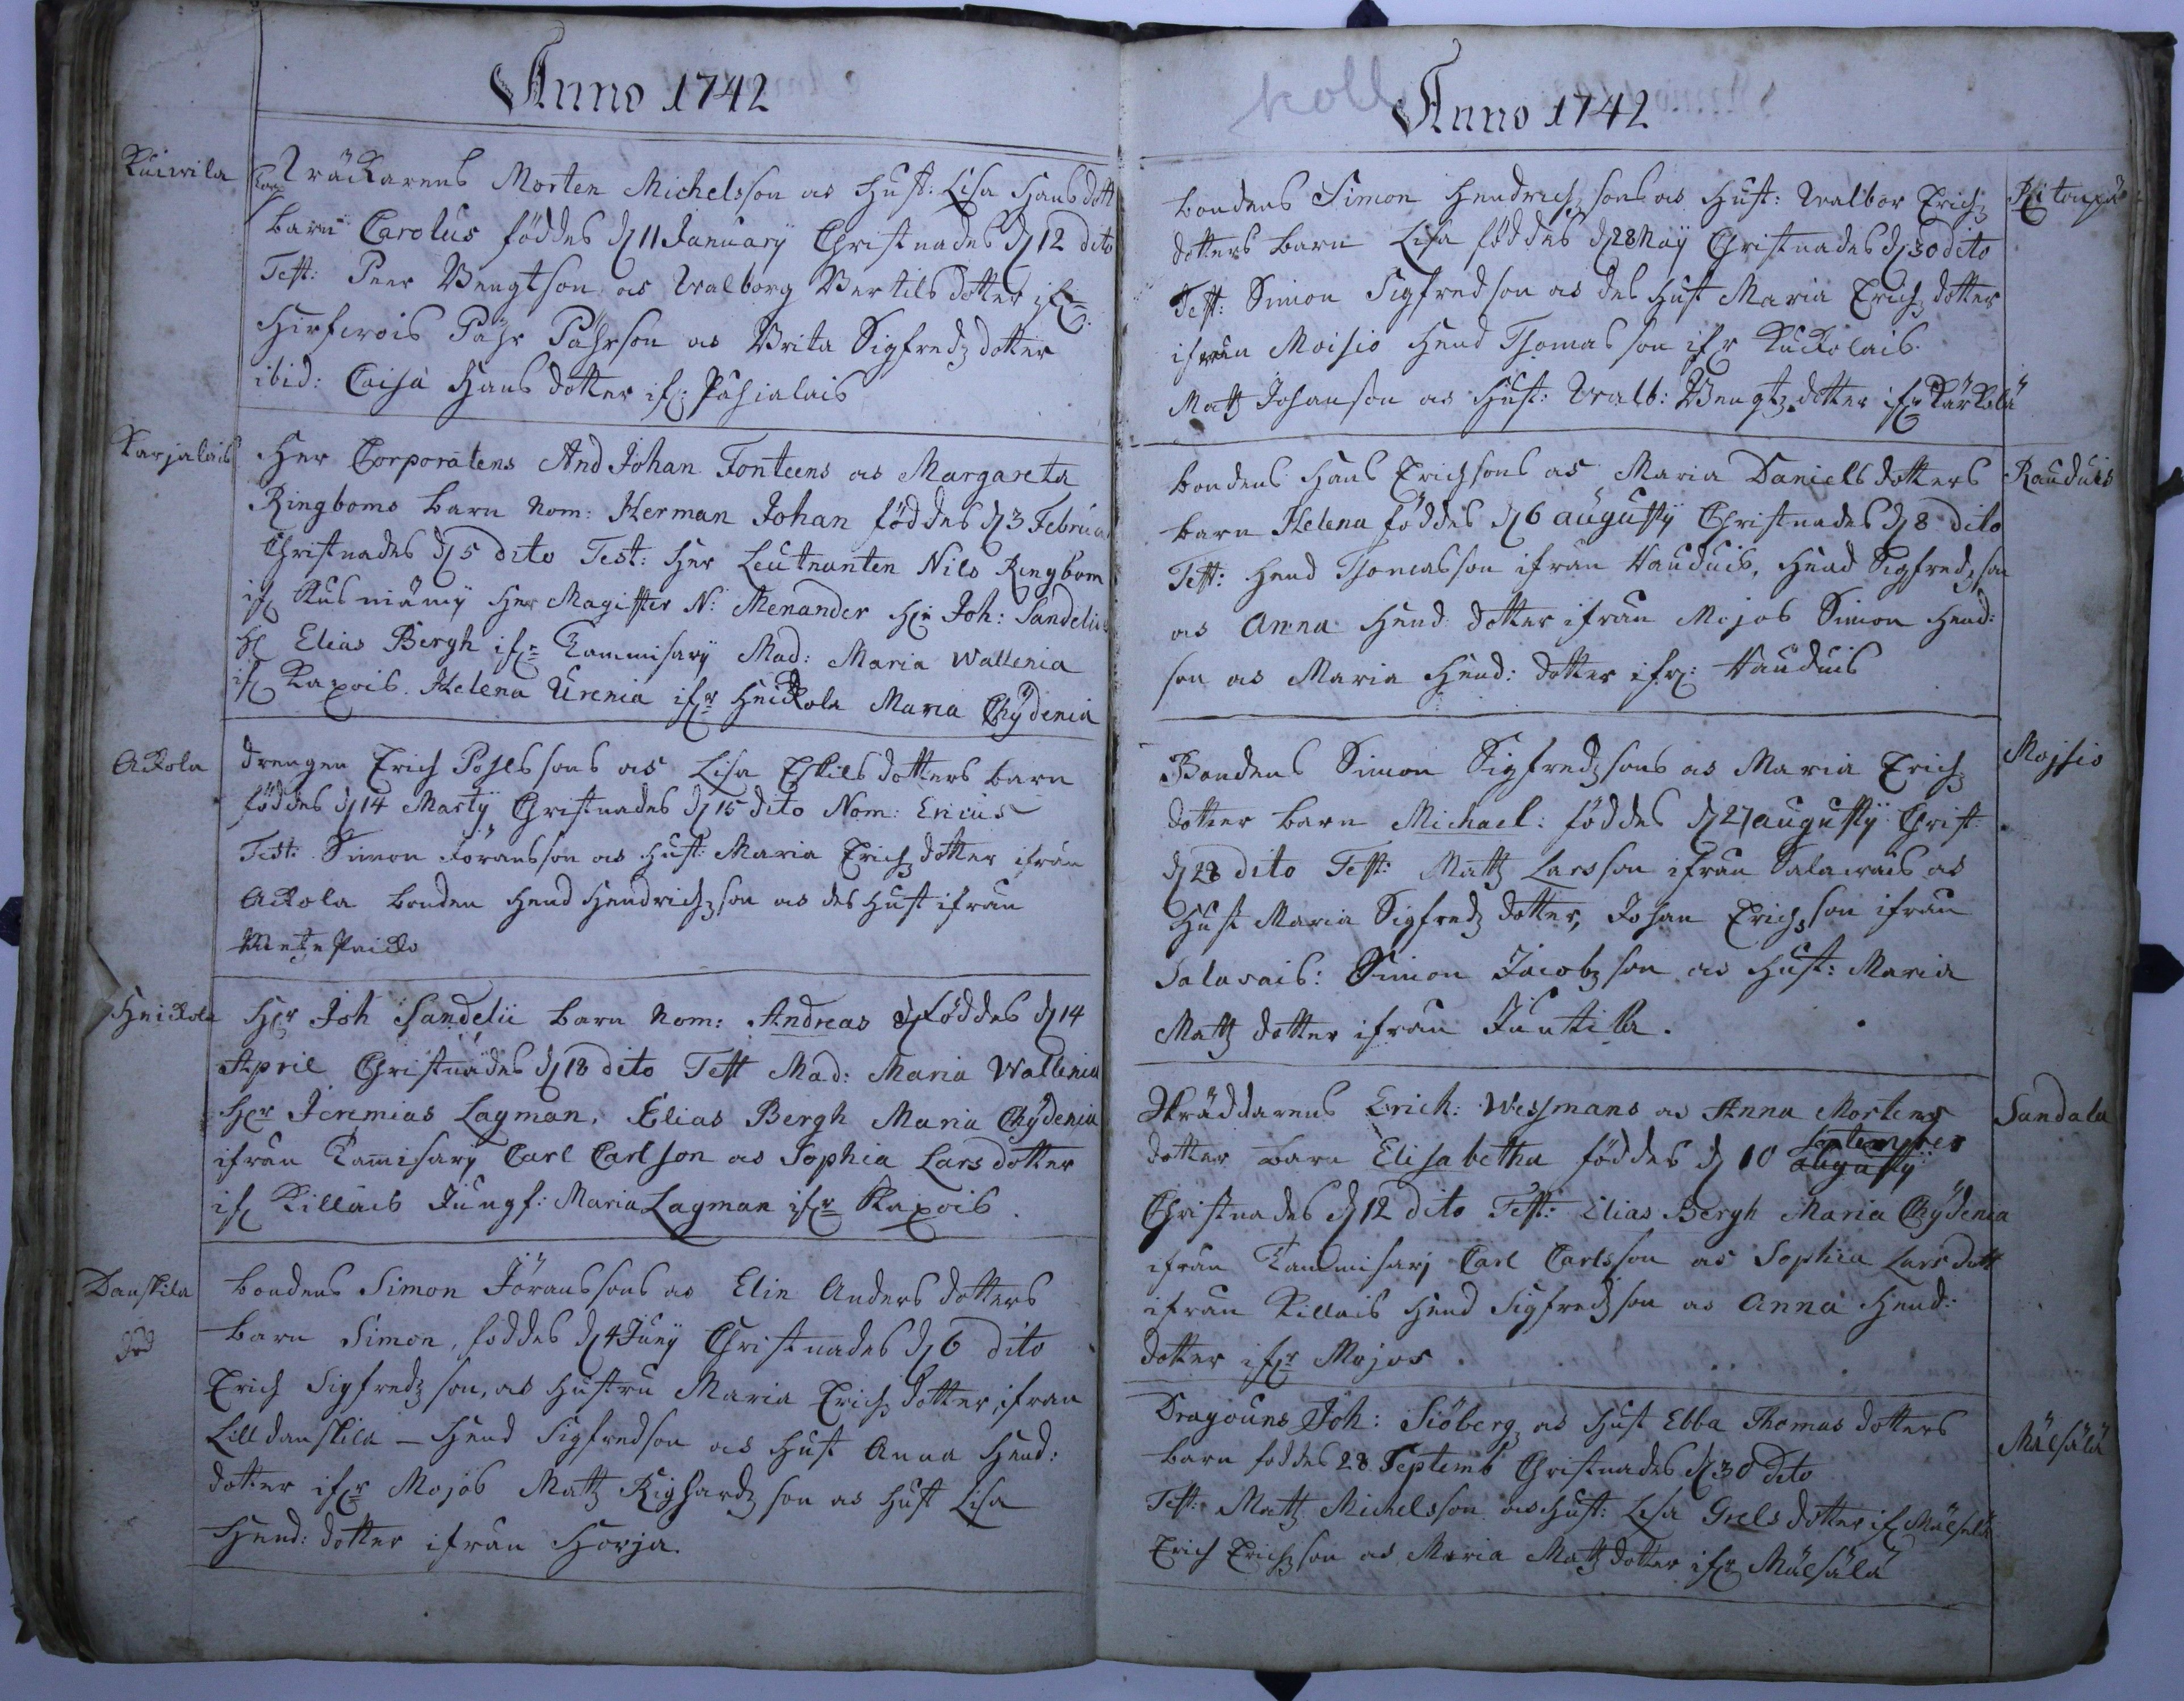 Anno 1742
Kuiwila
Träkarens Morten Michelsson as Hust: Lisa Hansdott
barn Carolus föddes d 11 January Christnades d 12 dito
Test: Peer Bengtson as Walborg Bertils dotter ifr
Hirfwois Pähr Pährson as Brita Sigfredz dotter
ibid: Caisa Hans dotter ifr Pasialais
Karjalais
Her Corporalens And Johan Fonteens as Margareta
Ringboms barn Nom: Herman Johan föddes d 3 Februa
Christnades d 5 dito Test: Her Leutnanten Nils Ringbom
if Kusniämÿ Her Magister N: Menander Hr Joh: Sandelius
H Elias Bergh ifr Kommisarÿ Mad: Maria Wallenia
if Kaxois. Helena Urenia ifr Heickola Maria Chÿdenia
Ackola
drengen Erich Pohlssons as Lisa Eskils dotters barn
föddes d 14 Martÿ Christnades d 15 dito Nom: Ericus
Test: Simon Jöransson as Hust: Maria Erichz dotter ifrån
Ackola bonden Hend Hendrichz son as des Hust ifrån
Heickola
Hr Joh Sandelii barn Nom: Andreas föddes d 14
April Christnades d 18 dito Test Mad: Maria Wallenia
Hr Jeremias Lagman, Elias Bergh Maria Chÿdenia
ifrån Kamisarÿ Carl Carlson as Sophia Lars dotter
if Killais Jungf: Maria Lagman ifr Kaxois.
Danskila
död
bondens Simon Jöranssons as Elin Anders dotters
barn Simon, föddes d 4 Junÿ Christnades d 6 dito
Erich Sigfredz son, as hustru Maria Erichz dotter, ifran
Lill danskila – Hend Sigfredson as Hust Anna Hend:
dotter ifr Mojos Mattz Righardz son as Hust Lisa
Hend: dotter ifrån Horja.
koll
Anno 1742
bondens Simon Hendrichz sons as Hust: Walbor Erichz
dotters barn Lisa föddes d 28 Maÿ Christnades d 30 dito
Test: Simon Sigfredson as des Hust Maria Erichz dotter
ifrån Moisio Hend Thomas son ifr Kuckolais.
Mattz Johanson as Hust: Walb: Bengtz dotter ifr Kärkolä
Rauduis
bondens Hans Erichsons as Maria Daniels dotters
barn Helena föddes d 6 augustÿ Christnades d 8 dito
Test: Hend Thomasson ifrån Rauduis, Hend Sigfredz son
as Anna Hend dotter ifrån Mojos Simon Hend:
son as Maria Hend: dotter ifr: Rauduis
Mojsio
Bondens Simon Sigfredz sons as Maria Erichz
dotter barn Michael: föddes d 27 augustÿ Christ:
d 28 dito Test: Mattz Larsson ifrån Salawais as
Hust Maria Sigfredz dotter, Johan Erichz son ifrån
Salavais: Simon Jacobz son as Hust: Maria
Mattz dotter ifrån Juntila.
Sandala
Skräddarens Erich: Wessmans as Anna Mortens
dotter barn Elisabetha föddes d 10 augustÿ September
Christnades d 12 dito Test: Elias Bergh Maria Chÿdenia
ifrån Kammisarj Carl Carlsson as Sophia Lars dott
ifrån Killais Hend Sigfredz son as Anna Hend:
dotter ifr Mojos.
Mälsälä
Dragouns Joh: Siöberg as Hust Ebba Thomas dotters
barn foddes 28 Septemb Christnades d 30 dito
Test: Mattz Michelsson as Hust: Lisa Grels dotter if Mälsälä
Erich Erichz son as Maria Mattz dotter ifr Mälsälä